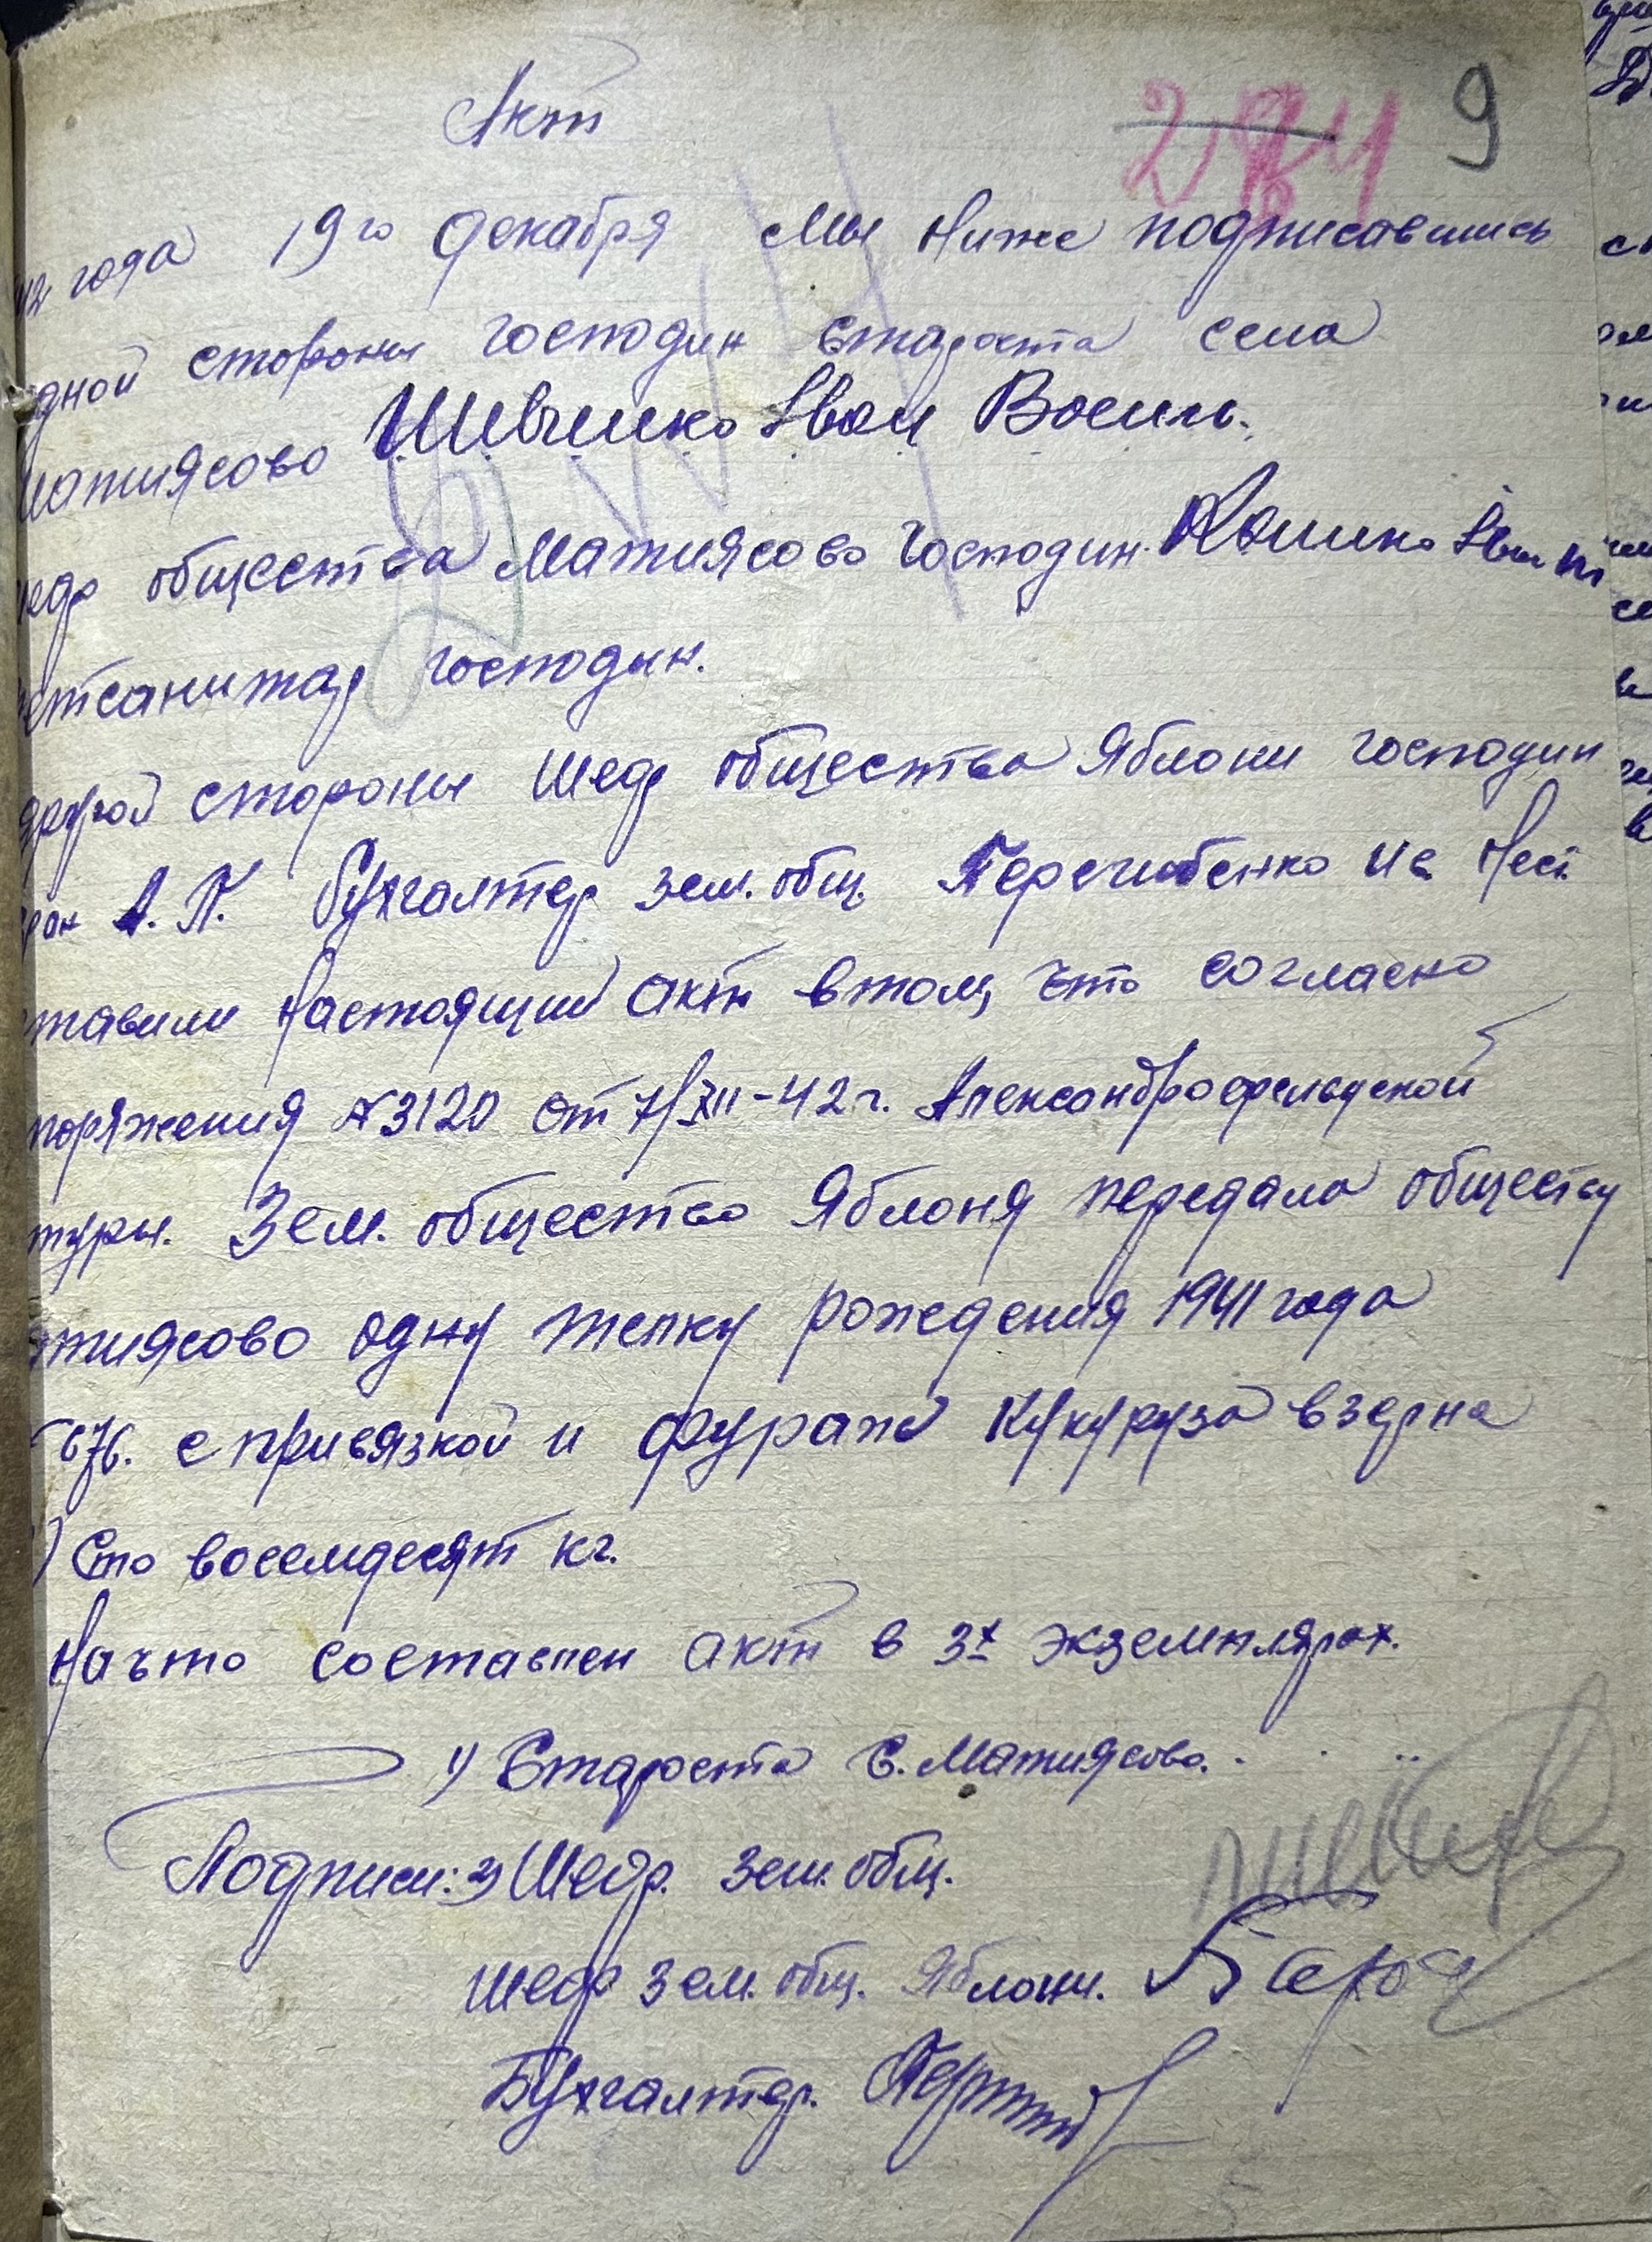 Акт
9
42 года 19го декабря Мы Ниже подписавшись
одной стороны господин староста села
Матиясово Шевченко Иван Василь.
Шеф общества Матиясово Господин. Иван
ветсанитар господин.
другой стороны шеф общества Яблони господин
А. П. бухгалтер зем. общ. Ив
ставили Настоящий акт в том, что согласно
поряжения № 3120 от 7/XII-42 г. Александрофельдской
туры. Зем. общество Яблоня передала обществу
тиясово одну телку рождения 1941 года
с привязкой и фураж кукуруза в зерна
) Сто восемдесят кг.
На что составлен акт в 3х экземплярах.
1) Староста с. Матиясово. . . ..
Подписи: 2) Шеф. зем. общ.
Шеф зем. общ. Яблони.
Бухгалтер.